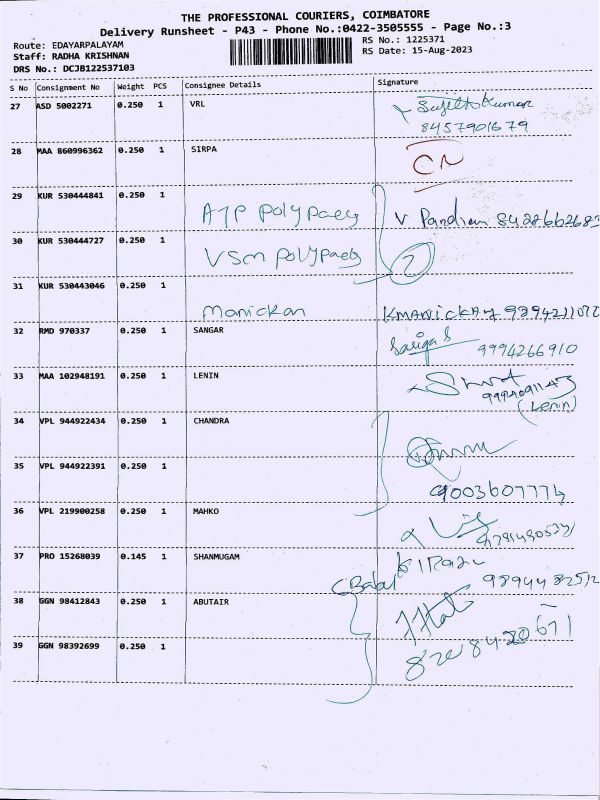 THE PROFESSIONAL COURIERS, COIMBATORE
Delivery Runsheet - P43 - Phone No.:0422-3505555 - Page No.:3
Route: EDAYARPALAYAM RS No.: 1225371
Staff: RADHA KRISHNAN RS Date: 15-Aug-2023
DRS No.: DCJB122537103
S No Consignment No Weight PCS Consignee Details Signature
27 ASD 5002271 0.250 1 VRL Sujith Kumar
8457901679
28 MAA 860996362 0.250 1 SIRPA CN
29 KUR 530444841 0.250 1
ATP Polypacg V Pandian
30 KUR 530444727 0.250 1
VSM Polypacg 2
31 KUR 530443046 0.250 1
Manickan KMANICKAM
32 RMD 970337 0.250 1 SANGAR
9994266910
33 MAA 102948191 0.250 1 LENIN
(Lenin)
34 VPL 944922434 0.250 1 CHANDRA
35 VPL 944922391 0.250 1
9003607774
36 VPL 219900258 0.250 1 MAHKO
37 PRO 15268039 0.145 1 SHANMUGAM
9894482512
38 GGN 98412843 0.250 1 ABUTAIR
39 GGN 98392699 0.250 1